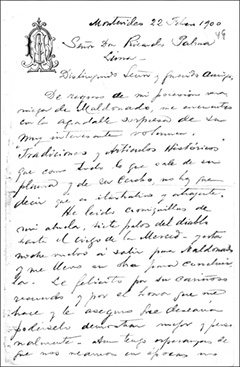 Montevideo 22 Febr 1900
Señor Don Ricardo Palma
Lima
Distinguido Señor y querido Amigo,
De regreso de mi
de Maldonado, me encuentro
con la agradable sorpresa de su
muy interesante volumen
"Tradiciones y Artículos Históricos"
que como todo lo que sale de su
pluma y de su no hay que
decir que es ilustrativo y atrayente.
He leido
mi abuela, siete pelos del diablo
hasta el ciego de la Merced. y esta
noche vuelvo a salir para Maldonado
y me llevo su para concluir
la. Le felicito por su cariñoso
recuerdo y por el honor que me
hace y le aseguro que desearia
poderselo demostrar mejor y perso
nalmente. Aun tengo esperanzas de
que nos veamos en